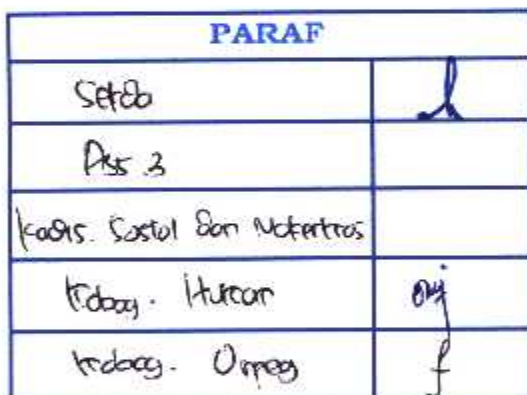 PARAF
Setda
Ass 3
Kadis. Sosial Dan Nakertras
Kabag. Hukum
Kabag. Umpeg